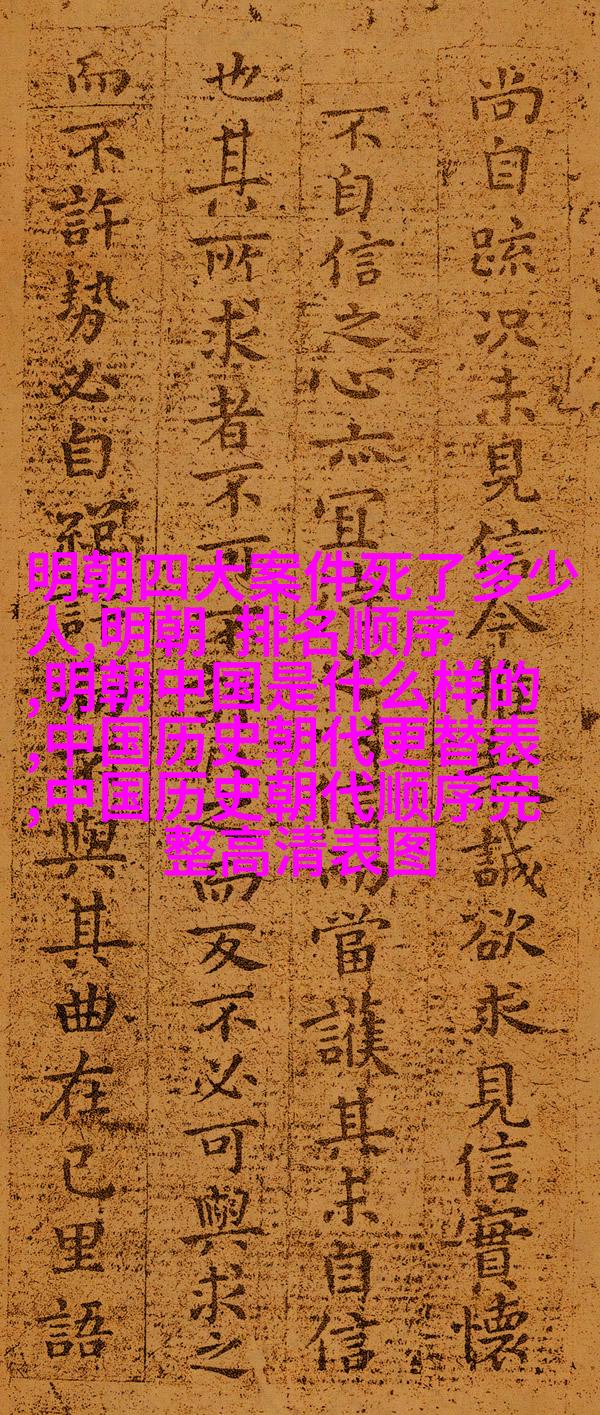 尚自疏况未見信今誠欲求見信實懷
不自信之心亦宜而當護其未自信
也其所求者不可而反不必可與求之
而不許勢必自與其曲在己里語
明朝四大案件死了多少
人,明朝 排名顺序
,明朝中国是什么样的
,中国历史朝代更替表
,中国历史朝代顺序完
整高清表图